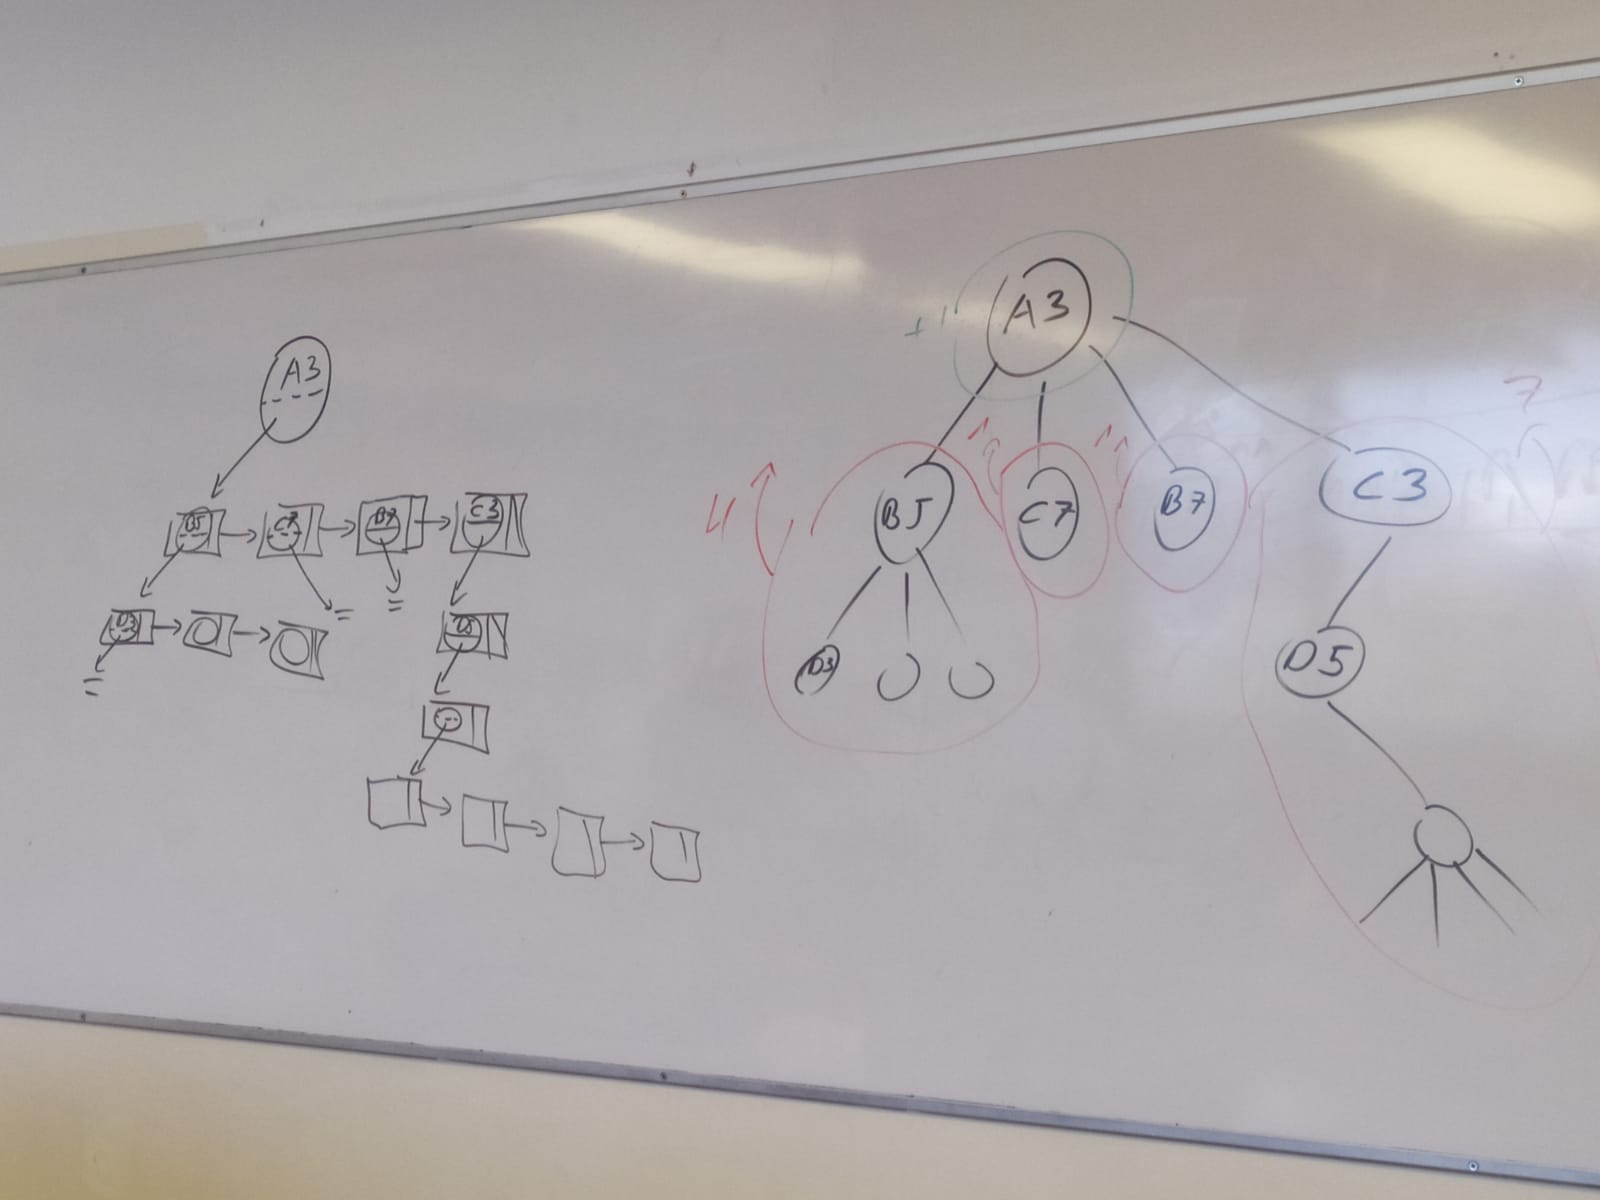 A3
B5 C7 B7 C3
D3 D5
A3
+1
4 1 1 7
B5 C7 B7 C3
D3 D5